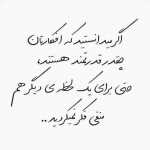 اگر میدانستید که افکارتان
چقدر قدرتمند هستند،
حتی برای یک لحظه ی دیگر هم
منفی فکر نمیکردید ..